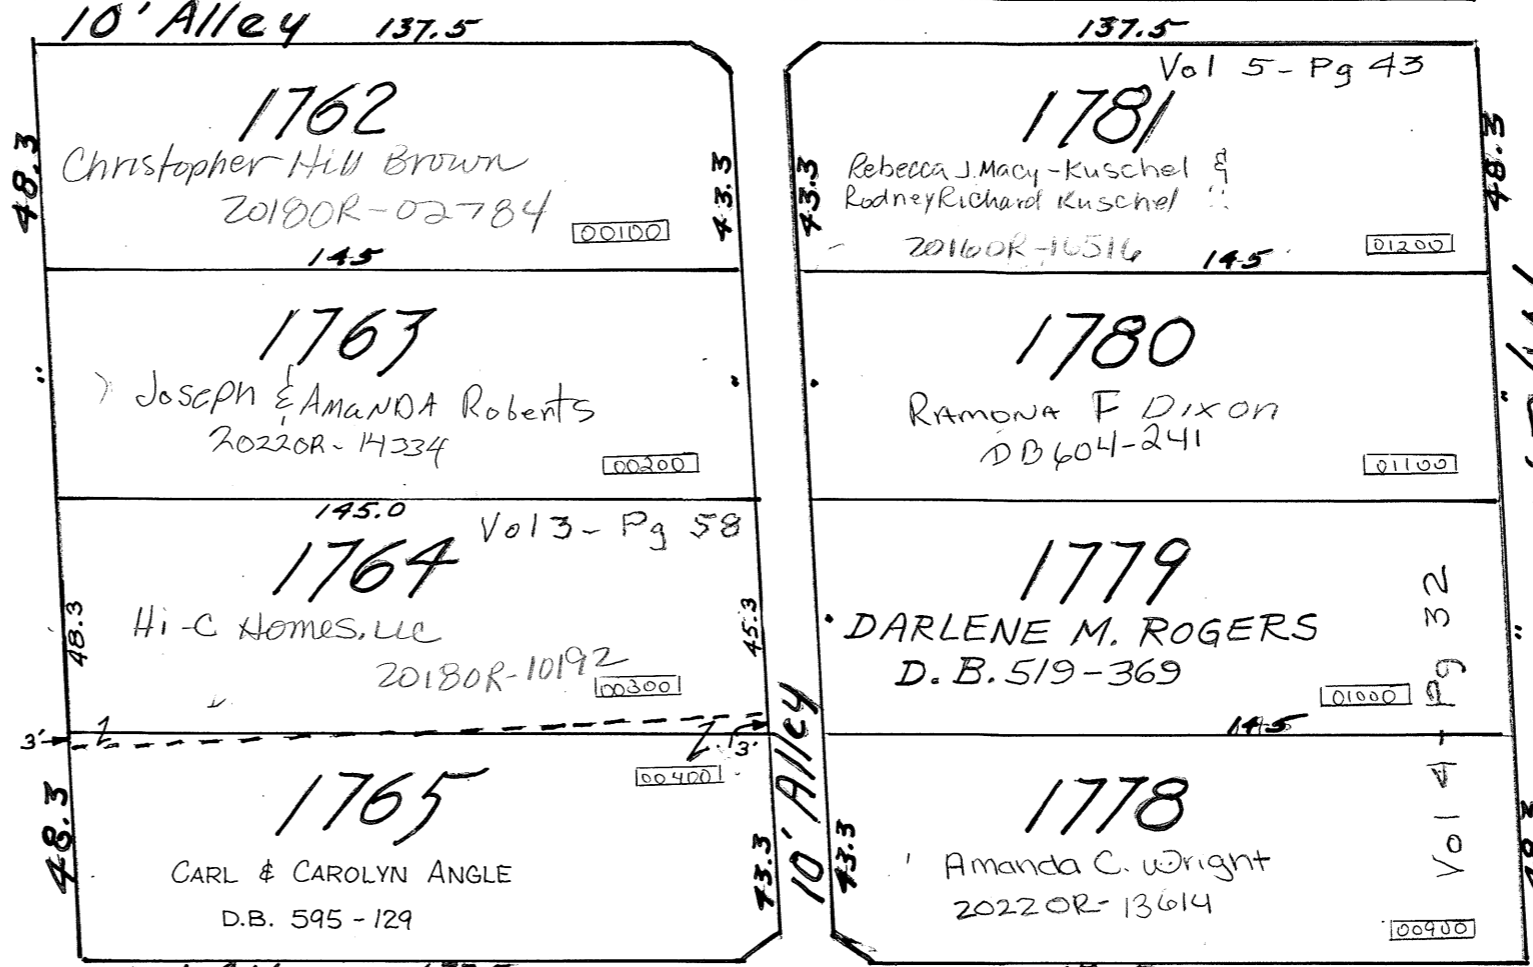 10' Alley
137.5
48.3
1762
Christopher Hill Brown
2018OR-02784
00100
43.3
145
1763
"
Joseph & AMANDA Roberts
2022OR-14334
00200
"
145.0
Vol 3- Pg 58
1764
48.3
Hi-C Homes, LLC
2018OR-10192
00300
45.3
3'
3'
00400
1765
48.3
CARL & CAROLYN ANGLE
D.B. 595-129
43.3
10' Alley
137.5
Vol 5- Pg 43
1781
43.3
48.3
Rebecca J. Macy-Kuschel &
Rodney Richard Kuschel
2016OR-16516
01200
145
1780
RAMONA F Dixon
DB 604-241
01100
"
1779
DARLENE M. ROGERS
D.B. 519-369
01000
"
145
Vol 4- Pg 32
1778
43.3
Amanda C. Wright
2022OR-13614
00900